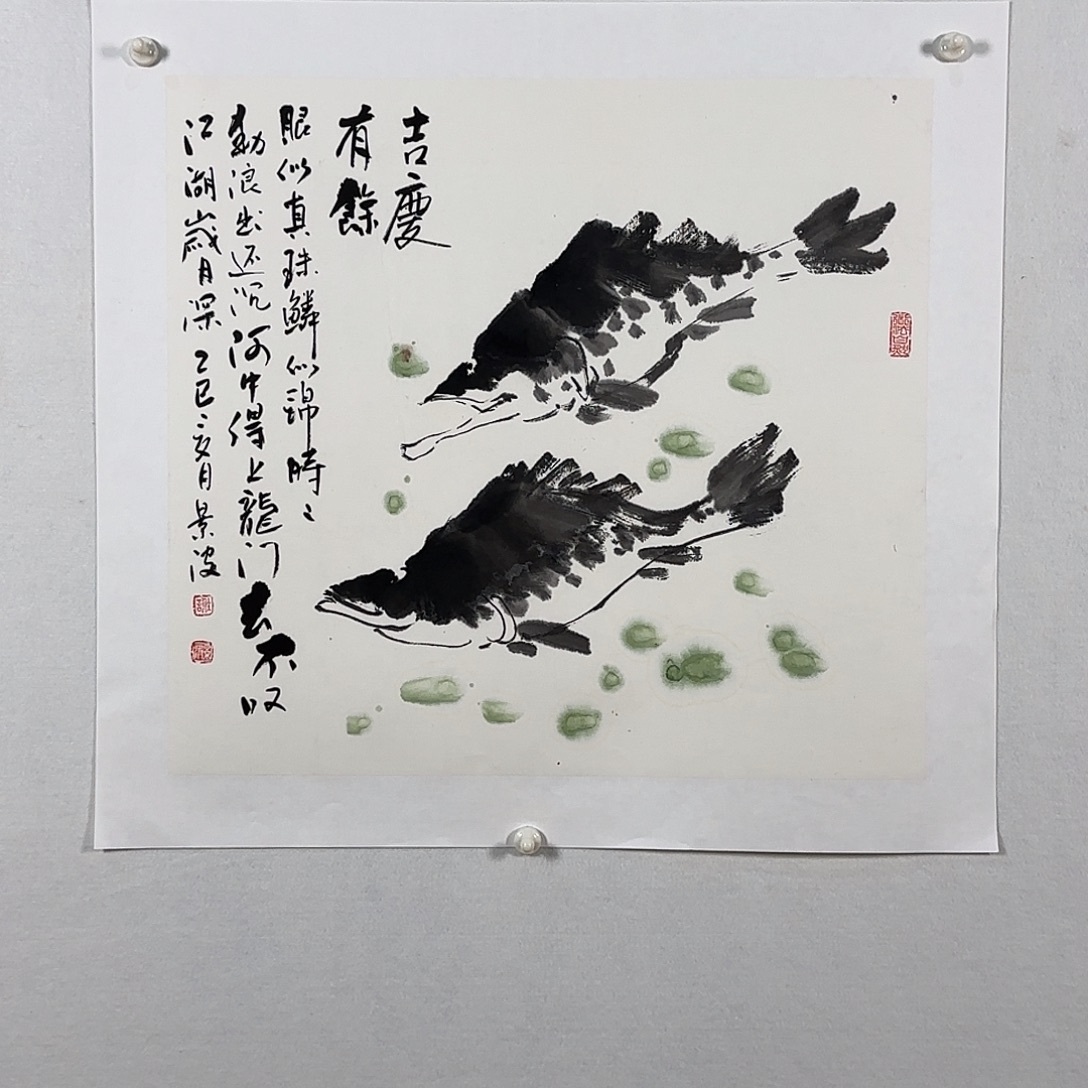 吉慶
有餘
眼似真珠鱗似錦時〻
動浪出还沉河中得上龍门去不叹
江湖歲月深 乙巳〻亥月 景波